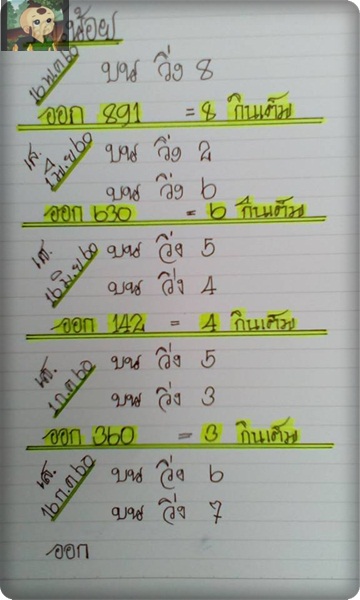 น้อย
16 พ.ค 60
บน วิ่ง 8
ออก 891 = 8 กินเต็ม
เส. 1 มิ.ย 60
บน วิ่ง 2
บน วิ่ง 6
ออก 630 = 6 กินเต็ม
เส. 16 มิ.ย 60
บน วิ่ง 5
บน วิ่ง 4
ออก 142 = 4 กินเต็ม
เส. 1 ก.ค 60
บน วิ่ง 5
บน วิ่ง 3
ออก 360 = 3 กินเต็ม
เส. 16 ก.ค 60
บน วิ่ง 6
บน วิ่ง 7
ออก